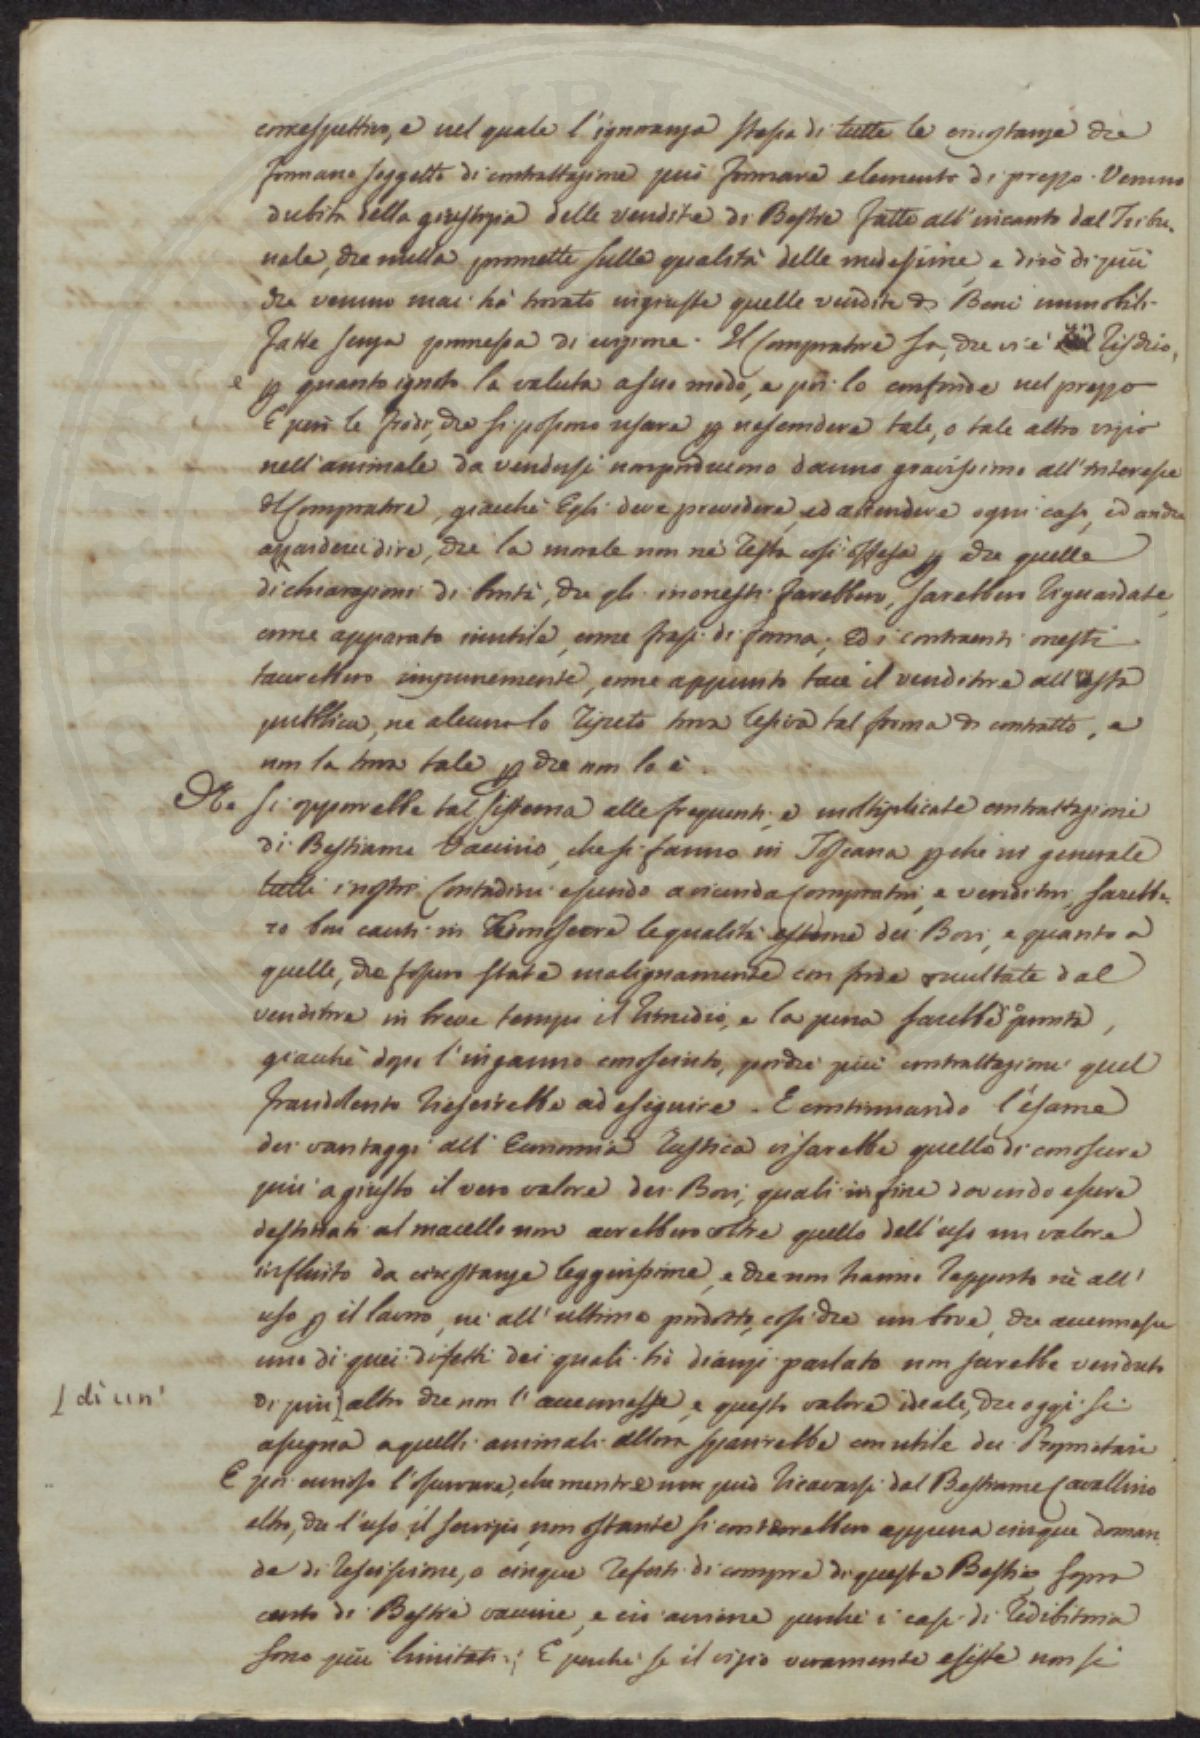 correspettivo, e nel quale l'ignoranza stessa di tutte le circostanze che
formano soggetto di contrattazione può formare elemento di prezzo. Veruno
dubita della giustizia delle vendite di Bestie fatte all'incanto dal Tribu-
nale, che nulla promette sulla qualità delle medesime, e dirò di più
che veruno mai ha trovato ingiuste quelle vendite di Beni immobili
fatte senza promessa di evizione. Il Compratore sa, che vi è un Rischio,
e per quanto ignoto la valuta a suo modo, e poi lo confonde nel prezzo
E però le frodi, che si possono usare per nascondere tale, o tale altro vizio
nell'animale da vendersi non producono danno gravissimo all'Interesse
del Compratore, giacchè Egli deve prevedere, ed attendere ogni caso, ed andrei
a dire, che la morale non ne resta così offesa per che quelle
dichiarazioni di bontà, che gli inonesti farebbero, sarebbero riguardate
come apparato inutile, come frasi di forma; Ed i contraenti onesti
tacerebbero impunemente, come appunto tace il venditore all'asta
pubblica, nè alcuno lo ripeto trova lesiva tal forma di contratto, e
non la trova tale per che non lo è.
Che si opporrebbe tal sistema alle frequenti, e moltiplicate contrattazioni
di Bestiame Vaccino, che si fanno in Toscana perchè in generale
tutti i nostri Contadini essendo a vicenda Compratori, e venditori, sarebbe-
ro ben cauti in riconoscere le qualità esterne dei Bovi, e quanto a
quelle, che fossero state malignamente con frode occultate dal
venditore in breve tempo il rimedio, e la pena sarebbe pronta,
giacchè dopo l'inganno conosciuto, poche più contrattazioni quel
fraudolento riescirebbe ad eseguire. E continuando l'esame
dei vantaggi all'Economia Rustica vi sarebbe quello di conoscere
più a giusto il vero valore dei Bovi, quali in fine dovendo essere
destinati al macello non avrebbero oltre quello dell'uso un valore
influito da circostanze leggerissime, e che non hanno rapporto nè all'
uso per il lavoro, nè all'ultimo prodotto, così che un bove, che avesse
uno di quei difetti dei quali hò dianzi parlato non sarebbe venduto
[di un'
di più] altro che non l'avesse, e questo valore ideale, che oggi si
assegna a quelli animali allora sparirebbe con utile dei Proprietari
E poi curioso l'osservare, che mentre non può ricavarsi dal Bestiame Cavallino
altro, che l'uso, il servizio, non ostante si conterebbero appena cinque doman-
de di rescissione, o cinque refusi di compre di queste Bestie, sopra
cento di Bestie vaccine, e ciò avviene perchè i casi di redibitoria
sono più limitati; E perchè se il vizio veramente esiste non si